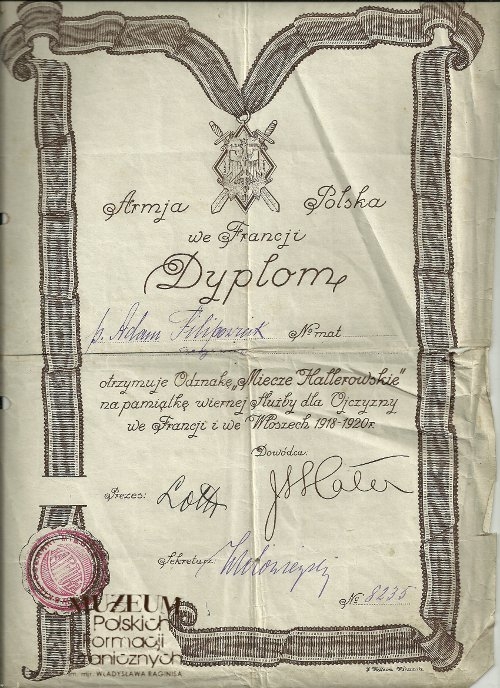 Armja Polska
we Francji
Dyplom
p. Adam № mat
otrzymuje Odznakę „Miecze Hallerowskie"
na pamiątkę wiernej Służby dla Ojczyzny
we Francji i we Włoszech 1918-1920r.
Dowódca:
Prezes:
Sekretarz:
№ 8235
MUZEUM
Polskich
Formacji
Granicznych
im. mjr. WŁADYSŁAWA RAGINISA